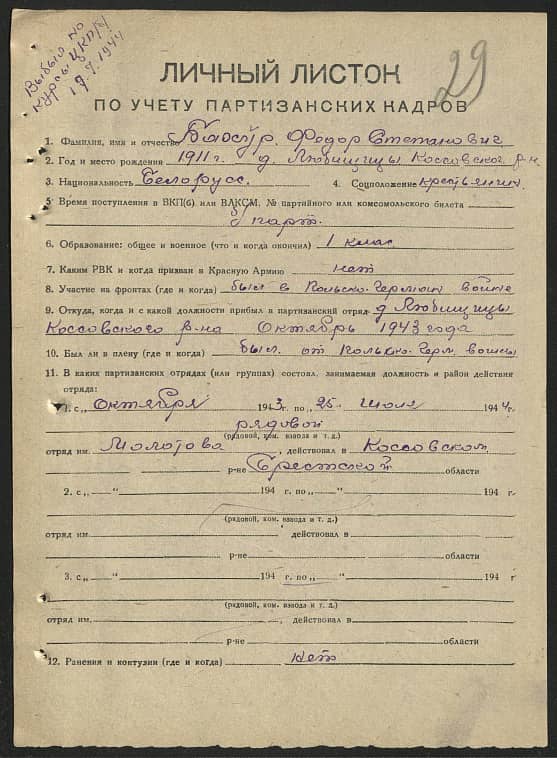 Выбыл на
курсы ЦК
19.7.1944
29
ЛИЧНЫЙ ЛИСТОК
ПО УЧЕТУ ПАРТИЗАНСКИХ КАДРОВ
1. Фамилия, имя и отчество Федор Степанович
2. Год и место рождения 1911 г. д. Любищицы Коссовского р-н
3. Национальность Белорусс. 4. Соцположение крестьянин
5. Время поступления в ВКП(б) или ВЛКСМ, № партийного или комсомольского билета
б/парт.
6. Образование: общее и военное (что и когда окончил) 1 клас
7. Каким РВК и когда призван в Красную Армию нет
8. Участие на фронтах (где и когда) был в Польско-Герман войне
9. Откуда, когда и с какой должности прибыл в партизанский отряд д Любищицы
Коссовского р-на Октябрь 1943 года
10. Был ли в плену (где и когда) был от польско-герм. войны
11. В каких партизанских отрядах (или группах) состоял, занимаемая должность и район действия
отряда:
1. с „Октября 1943 г. по „25 Июля 1944 г.
рядовой
(рядовой, ком. взвода и т. д.)
отряд им. Молотова, действовал в Коссовском
р-не Брестской области
2. с „ “ 194 г. по „ “ 194 г.
(рядовой, ком. взвода и т. д.)
отряд им. действовал в
р-не области
3. с „ “ 194 г. по „ “ 194 г
(рядовой, ком. взвода и т. д.)
отряд им. , действовал в
р-не области
12. Ранения и контузии (где и когда) нет